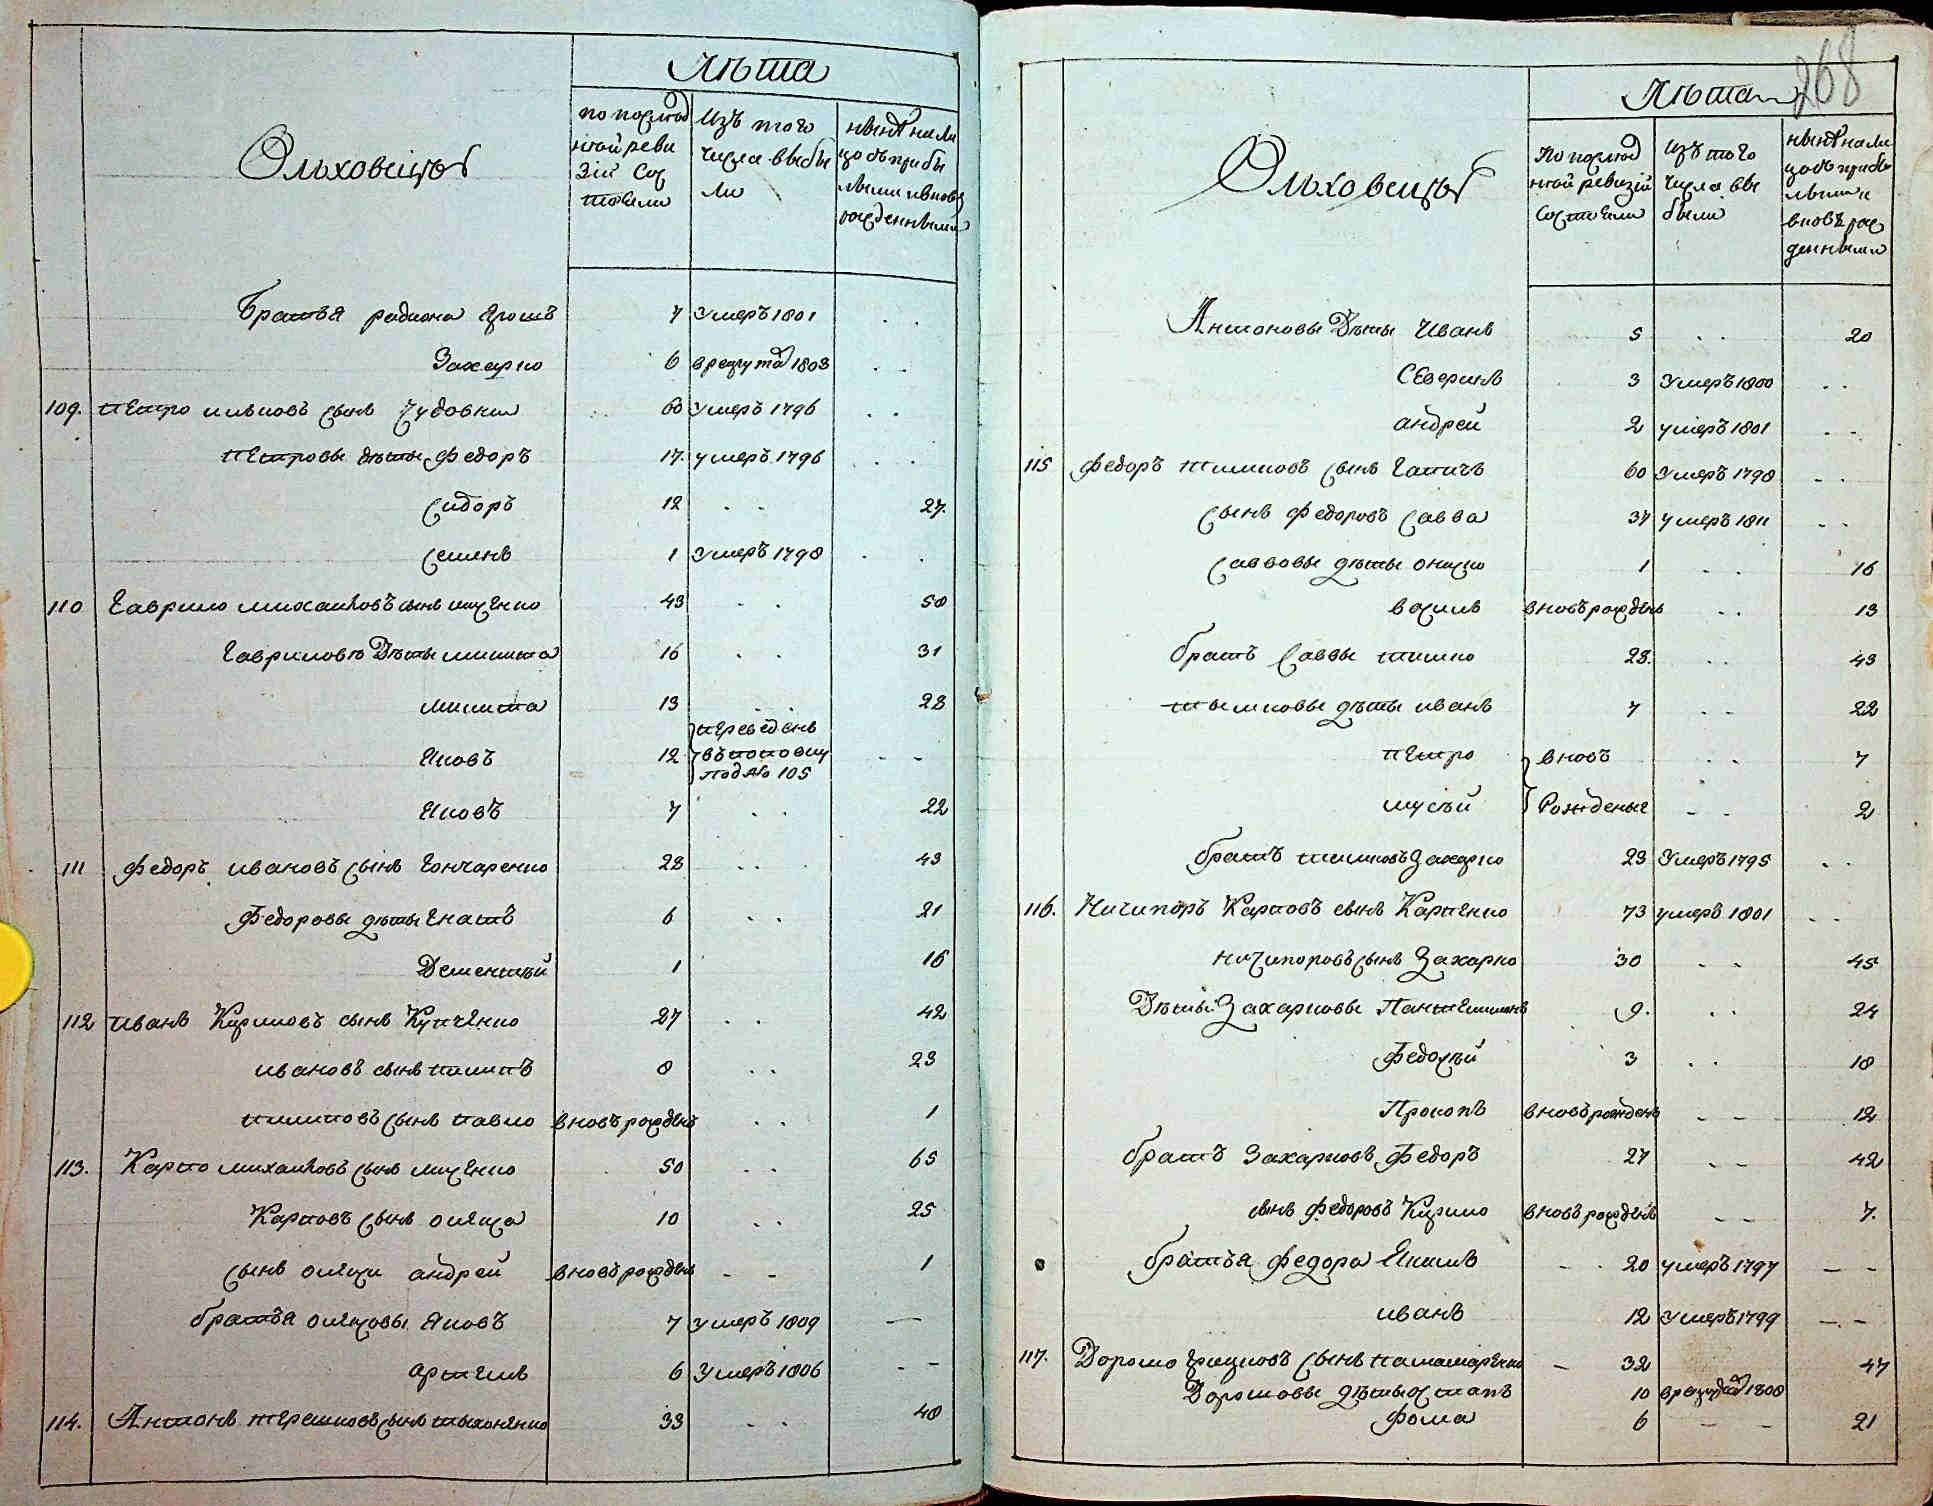 Лѣта
Ольховецъ
по послѣд
ной реви
зіи сос
тояли
Изъ того
числа выбы
ли
нынѣ на ли
цо съ прибы
лыми и вновь
рожденными
Братья радиона Ярошъ 7 умеръ 1801 . .
Захарко 6 в рекрута 1803 . .
109. Петро ильковъ сынъ Чудовкин 60 умеръ 1796 . .
Петровы дѣты Федоръ 17. умеръ 1796 . .
Сидоръ 12 . . 27.
Семенъ 1 умеръ 1798 . .
110 Гаврило михайловъ сынъ мисенко 43 . . 58
Гавриловы Дѣты микита 16 . . 31
микита 13 . . 28
Яковъ 12 переведенъ
въ поповку
под № 105 - -
Яковъ 7 . . 22
111 Федоръ ивановъ сынъ Гончаренко 28 . . 43
Федоровы дѣты Гнатъ 6 . . 21
Дементѣй 1 16
112 иванъ Кириловъ сынъ Купченко 27 . . 42
ивановъ сынъ пилипъ 8 . . 23
пилиповъ сынъ павло вновь рожденъ . . 1
113. Карпо михайловъ сынъ мисенко 50 . . 65
Карповъ сынъ олекса 10 . . 25
сынъ олексы андрей вновь рожденъ - - 1
братья олексовы Яковъ 7 умеръ 1809 —
артемъ 6 умеръ 1806 - -
114. Антонъ терешковъ сынъ тихоненко 33 . . 48
268
Лѣта
Ольховецъ
по послѣд
ной ревизіи
состояли
изъ того
числа вы
были
нынѣ на ли
цо съ прибы
лыми и
вновь рож
денными
Антоновы Дѣты Иванъ 5 . . 20
Северинъ 3 умеръ 1800 . .
андрей 2 умеръ 1801 . .
115 Федоръ тимковъ сынъ Гапичъ 60 умеръ 1798 . .
сынъ Федоровъ Савва 37 умеръ 1811 . .
Саввовы дѣты ониско 1 . . 16
василь вновь рожденъ . . 13
братъ Саввы тимко 28. . . 43
тымковы дѣты иванъ 7 . . 22
петро вновь . . 7
мусѣй Рожденые - - 2
братъ тимковъ Захарко 23 умеръ 1795 . .
116. Ничипоръ Карповъ сынъ Карпенко 73 умеръ 1801 . .
ничипоровъ сынъ Захарко 30 . . 45
Дѣты Захарковы Пантелимонъ 9. . . 24
Федосѣй 3 . . 18
Прокопъ вновь рожденъ - - 12
братъ Захарковъ Федоръ 27 - - 42
сынъ Федоровъ Кирило вновь рожденъ - - 7.
братья Федора Якимъ - . 20 умеръ 1797 — —
иванъ 12 умеръ 1799 - -
117. Дорошо грицковъ сынъ паламаренко — 32 47
Дорошовы дѣты остапъ 10 в рекрута 1808
Фома 6 - - 21